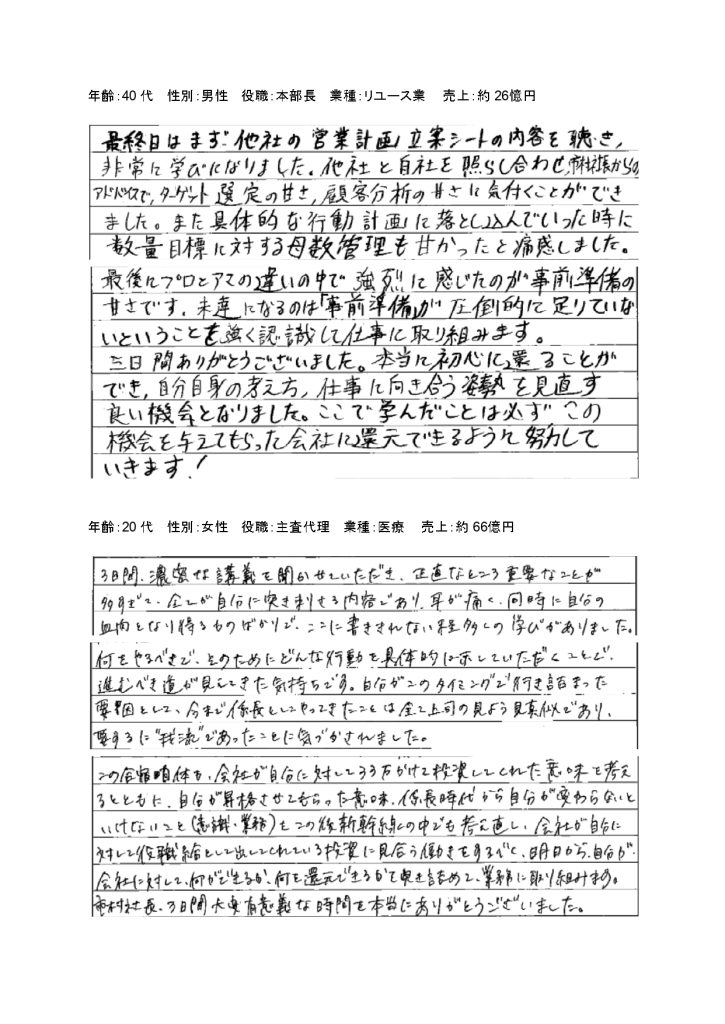 年齢：40代　性別：男性　役職：本部長　業種：リユース業　売上：約26億円
最終日はまず他社の営業計画立案シートの内容を聴き，
非常に学びになりました。他社と自社を照らし合わせ，市村社長からの
アドバイスで，ターゲット選定の甘さ，顧客分析の甘さに気付くことができ
ました。また具体的な行動計画に落とし込んでいった時に
数量目標に対する母数管理も甘かったと痛感しました。
最後にプロとアマの違いの中で強烈に感じたのが事前準備の
甘さです。未達になるのは「事前準備」が圧倒的に足りていな
いということを強く認識して仕事に取り組みます。
三日間ありがとうございました。本当に初心に還ることが
でき，自分自身の考え方，仕事に向き合う姿勢を見直す
良い機会となりました。ここで学んだことは必ずこの
機会を与えてもらった会社に還元できるように努力して
いきます！
年齢：20代　性別：女性　役職：主査代理　業種：医療　売上：約66億円
3日間、濃密な講義を聞かせていただき、正直なところ重要なことが
多すぎて、全てが自分に突き刺さる内容であり、耳が痛く、同時に自分の
血肉となり得るものばかりで、ここに書ききれない程多くの学びがありました。
何をやるべきで、そのためにどんな行動を具体的に示していただくことで、
進むべき道が見えてきた気持ちです。自分がこのタイミングで行き詰まった
要因として、今まで係長としてやってきたことは全て上司の見よう見真似であり、
要するに"我流"であったことに気づかされました。
この合宿自体も、会社が自分に対して33万かけて投資してくれた意味を考え
るとともに、自分が昇格させてもらった意味、係長時代から自分が変わらないと
いけないこと（意識・業務）をこの後新幹線の中でも考え直し、会社が自分に
対して役職給として出してくれている投資に見合う働きをするべく、明日から、自分が、
会社に対して、何ができるか、何を還元できるかを突き詰めて、業務に取り組みます。
市村社長、3日間大変有意義な時間を本当にありがとうございました。